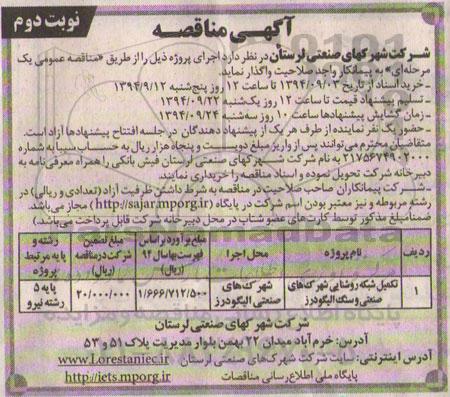 آگهی مناقصه
نوبت دوم
شرکت شهرکهای صنعتی لرستان در نظر دارد اجرای پروژه ذیل را از طریق «مناقصه عمومی یک
مرحله‌ای» به پیمانکار واجد صلاحیت واگذار نماید.
- خرید اسناد از تاریخ ۱۳۹۴/۰۹/۰۳ تا ساعت ۱۲ روز پنج‌شنبه ۱۳۹۴/۹/۱۲
- تسلیم پیشنهاد قیمت تا ساعت ۱۲ روز یک‌شنبه ۱۳۹۴/۰۹/۲۲
- زمان گشایش پیشنهادها ساعت ۱۰ روز سه‌شنبه ۱۳۹۴/۰۹/۲۴
- حضور یک نفر نماینده از طرف هر یک از پیشنهاد دهندگان در جلسه افتتاح پیشنهادها آزاد است.
متقاضیان محترم می‌توانند پس از واریز مبلغ دویست و پنجاه هزار ریال به حساب سیبا به شماره
۲۱۷۵۶۷۴۹۰۲۰۰۰ به نام شرکت شهرکهای صنعتی لرستان فیش بانکی را همراه معرفی‌نامه به
دبیرخانه شرکت تحویل نموده و اسناد مناقصه را خریداری نمایند.
- شرکت پیمانکاران صاحب صلاحیت در مناقصه به شرط داشتن ظرفیت آزاد (تعدادی و ریالی) در
رشته مربوطه و نیز معتبر بودن اسم شرکت در پایگاه (http://sajar.mporg.ir) مجاز می‌باشد.
ضمناً مبلغ مذکور توسط کارت‌های عضو شتاب در محل دبیرخانه شرکت قابل پرداخت می‌باشد.)
ردیف | نام پروژه | محل اجرا | مبلغ برآورد براساس فهرست بهاء سال ۹۴ (ریال) | مبلغ تضمین شرکت در مناقصه (ریال) | رشته و پایه مرتبط پروژه
۱ | تکمیل شبکه روشنایی شهرک‌های صنعتی و سنگ الیگودرز | شهرک‌های صنعتی الیگودرز | ۱/۶۶۶/۷۱۲/۵۰۰ | ۲۰/۰۰۰/۰۰۰ | پایه ۵ رشته نیرو
شرکت شهرکهای صنعتی لرستان
آدرس: خرم‌آباد میدان ۲۲ بهمن بلوار مدیریت پلاک ۵۱ و ۵۳
آدرس اینترنتی: سایت شرکت شهرک‌های صنعتی لرستان www.Lorestaniec.ir
پایگاه ملی اطلاع‌رسانی مناقصات http://iets.mporg.ir